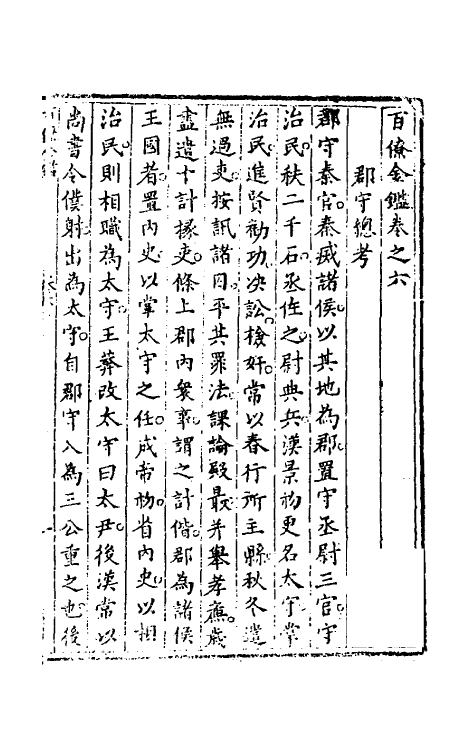 百僚金鑑卷之六
郡守總考
郡守秦官秦滅諸侯以其地為郡置守丞尉三官守
治民秩二千石丞佐之尉典兵漢景初更名太守掌
治民進賢勸功决訟檢奸常以春行所主縣秋冬遣
無過吏按訊諸囚平其罪法課論殿最并舉孝亷歲
盡遣上計掾吏條上郡內衆事謂之計偕郡為諸侯
王國者置內史以掌太守之任成帝初省內史以相
治民則相職為太守王莽改太守曰太尹後漢常以
尚書令僕射出為太守自郡守入為三公重之也後